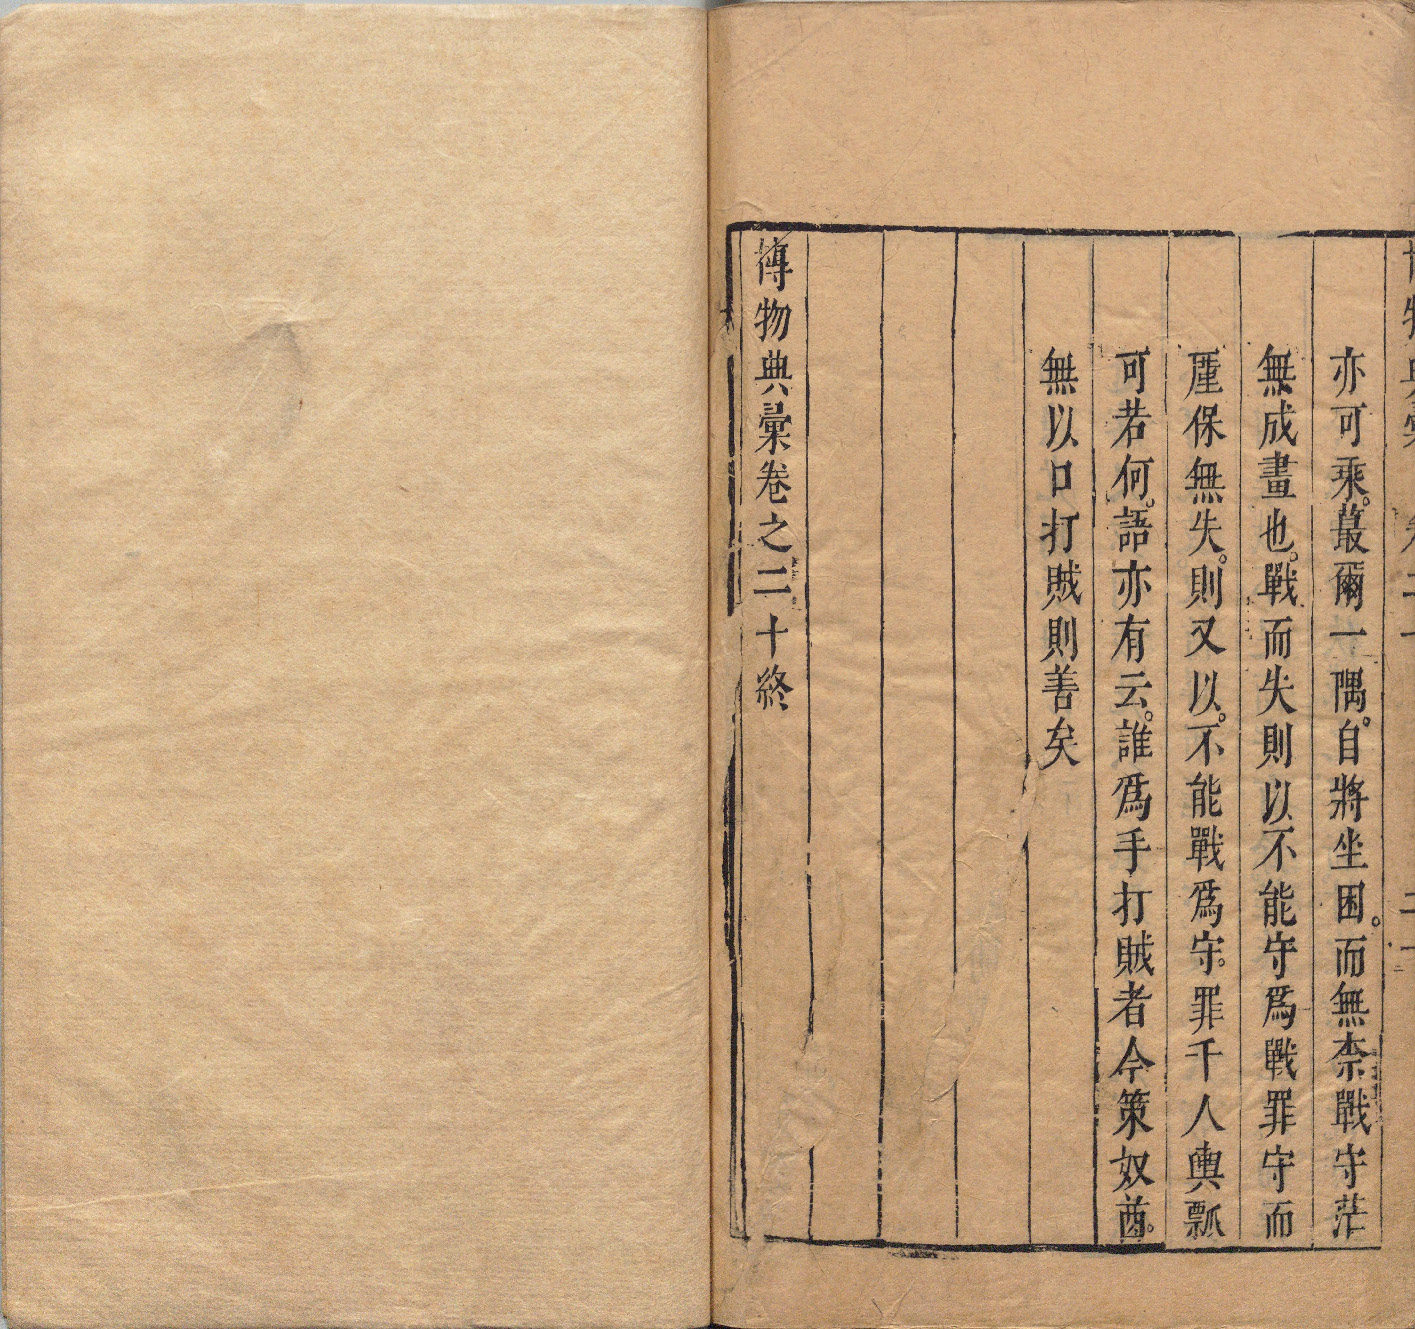 亦可乘。蕞爾一隅。自將坐困。而無柰戰守茫
無成畫也。戰而失則以不能守爲戰罪守而
厪保無失。則又以。不能戰爲守。罪千人輿瓢
可若何。語亦有云。誰爲手打賊者今策奴酋。
無以口打賊則善矣
博物典彙卷之二十終